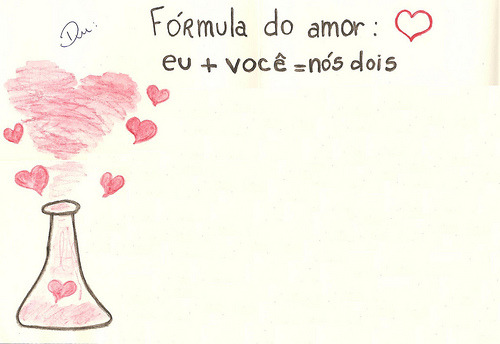 Fórmula do amor:
eu + você = nós dois